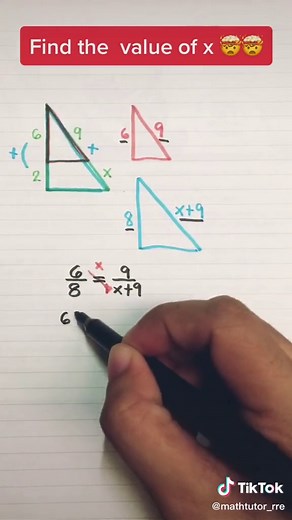 Find the value of x 🤯🤯
6 9
+( +
2 x
6 9
8 x+9
x
6/8 = 9/x+9
6
TikTok
@mathtutor_rre